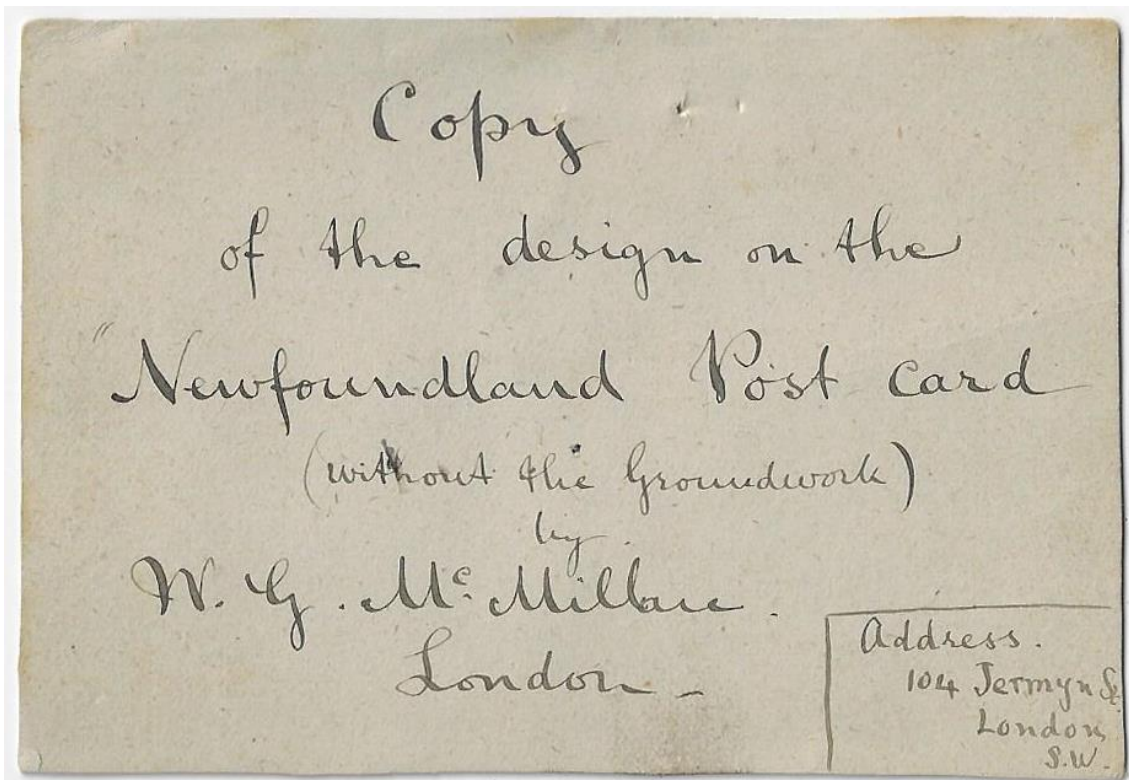 Copy
of the design on the
"Newfoundland Post card
(without the Groundwork)
by.
W. G. Mc. Millan.
London -
Address.
104 Jermyn St.
London,
S.W.